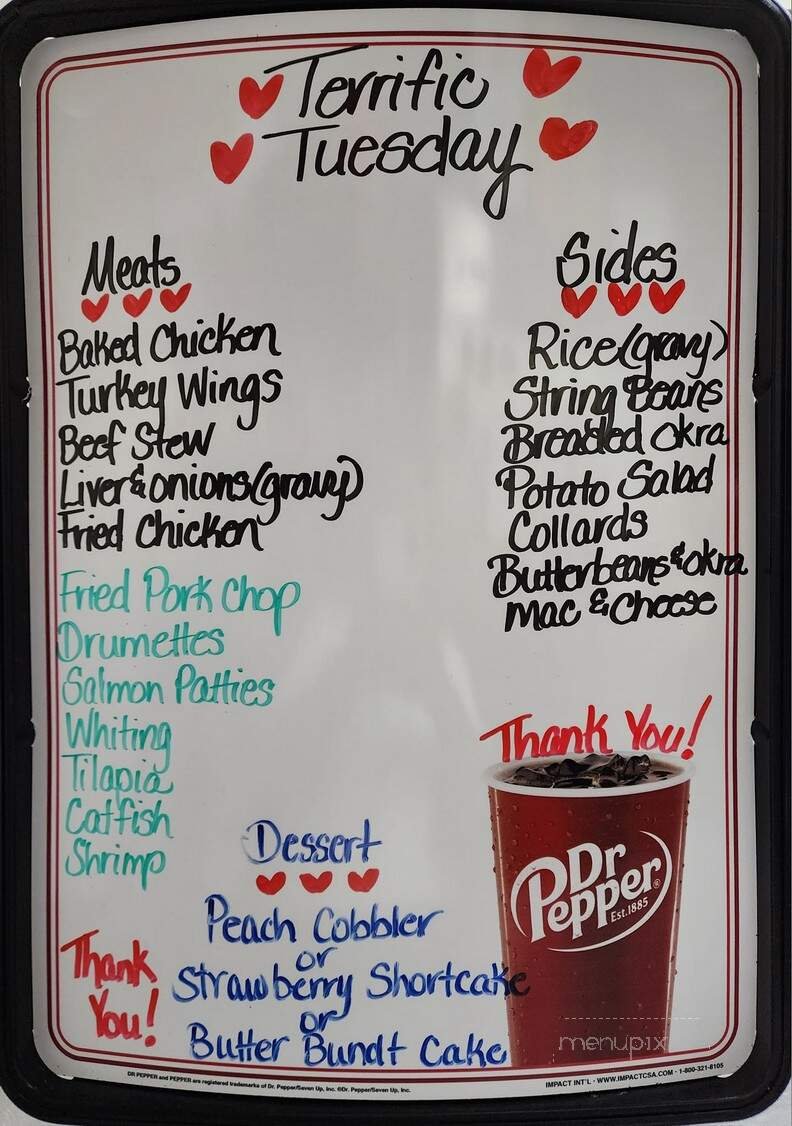 Terrific
Tuesday
Meats
Baked Chicken
Turkey Wings
Beef Stew
Liver & onions (gravy)
Fried Chicken
Fried Pork Chop
Drumettes
Salmon Patties
Whiting
Tilapia
Catfish
Shrimp
Sides
Rice (gravy)
String Beans
Breaded Okra
Potato Salad
Collards
Butterbeans & okra
Mac & Cheese
Thank You!
Dr
Pepper®
Est. 1885
Dessert
Peach Cobbler
or
Strawberry Shortcake
or
Butter Bundt Cake
Thank
You!
menupix
DR PEPPER and PEPPER are registered trademarks of Dr. Pepper/Seven Up, Inc. ©Dr. Pepper/Seven Up, Inc.
IMPACT INT'L · WWW.IMPACTCSA.COM · 1-800-321-8105